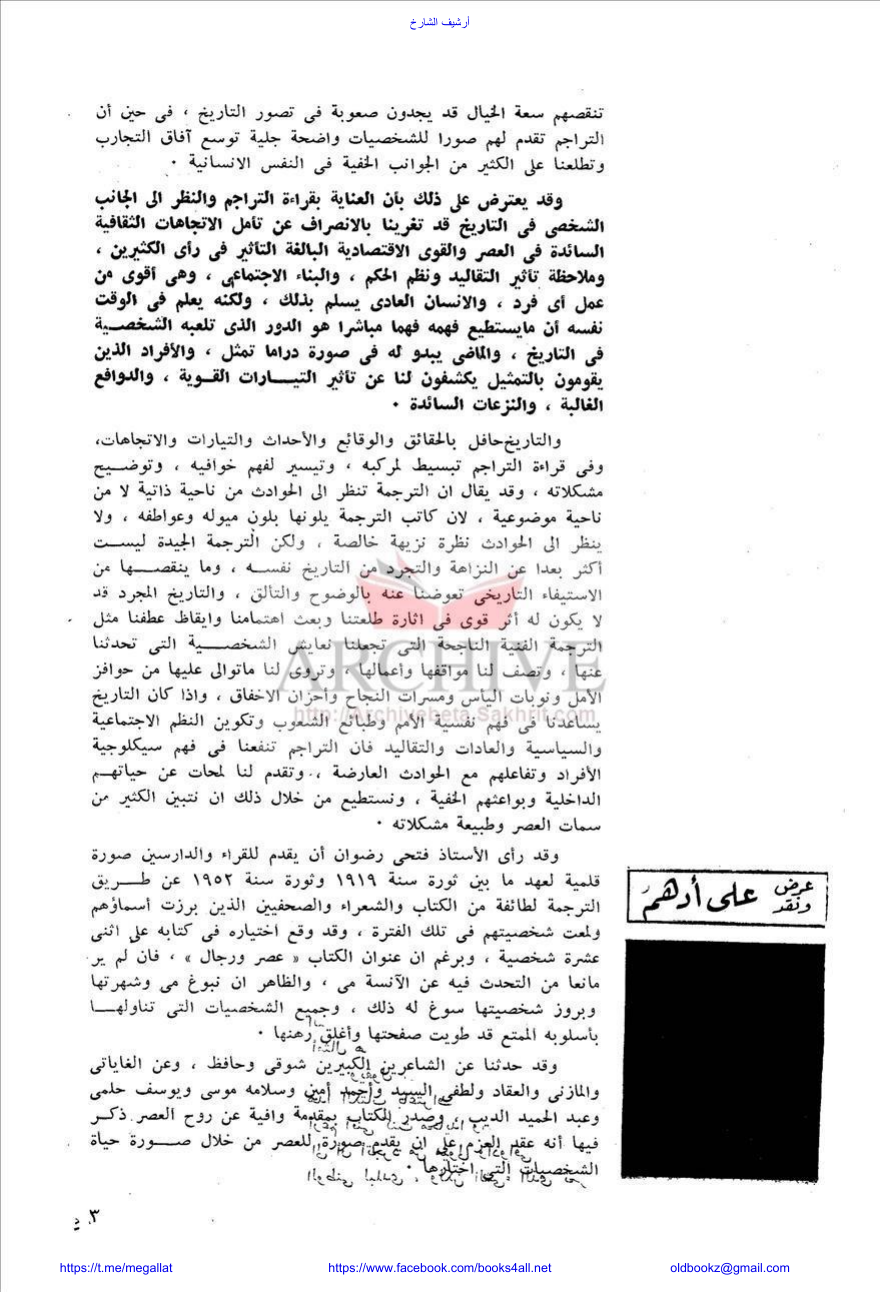 أرشيف الشارخ
تنقصهم سعة الخيال قد يجدون صعوبة فى تصور التاريخ ، فى حين أن
التراجم تقدم لهم صورا للشخصيات واضحة جلية توسع آفاق التجارب
وتطلعنا على الكثير من الجوانب الخفية فى النفس الانسانية ٠
وقد يعترض على ذلك بأن العناية بقراءة التراجم والنظر الى الجانب
الشخصى فى التاريخ قد تغرينا بالانصراف عن تأمل الاتجاهات الثقافية
السائدة فى العصر والقوى الاقتصادية البالغة التأثير فى رأى الكثيرين ،
وملاحظة تأثير التقاليد ونظم الحكم ، والبناء الاجتماعى ، وهى أقوى من
عمل أى فرد ، والانسان العادى يسلم بذلك ، ولكنه يعلم فى الوقت
نفسه أن مايستطيع فهمه فهما مباشرا هو الدور الذى تلعبه الشخصـية
فى التاريخ ، والماضى يبدو له فى صورة دراما تمثل ، والأفراد الذين
يقومون بالتمثيل يكشفون لنا عن تأثير التيـــارات القــوية ، والدوافع
الغالبة ، والنزعات السائدة ٠
والتاريخ حافل بالحقائق والوقائع والأحداث والتيارات والاتجاهات،
وفى قراءة التراجم تبسيط لمركبه ، وتيسير لفهم خوافيه ، وتوضــيح
مشكلاته ، وقد يقال ان الترجمة تنظر الى الحوادث من ناحية ذاتية لا من
ناحية موضوعية ، لان كاتب الترجمة يلونها بلون ميوله وعواطفه ، ولا
ينظر الى الحوادث نظرة نزيهة خالصة ، ولكن الترجمة الجيدة ليســت
أكثر بعدا عن النزاهة والتجرد من التاريخ نفســه ، وما ينقصــها من
الاستيفاء التاريخى تعوضنا عنه بالوضوح والتألق ، والتاريخ المجرد قد
لا يكون له أثر قوى فى اثارة طلعتنا وبعث اهتمامنا وايقاظ عطفنا مثل
الترجمة الفنية الناجحة التى تجعلنا نعايش الشخصــية التى تحدثنا
عنها ، وتصف لنا مواقفها وأعمالها ، وتروى لنا ماتوالى عليها من حوافز
ARCHIVE
الأمل ونوبات اليأس ومسرات النجاح وأحزان الاخفاق ، واذا كان التاريخ
http://Archivebeta.Sakhrit.com
يساعدنا فى فهم نفسية الأمم وطبائع الشعوب وتكوين النظم الاجتماعية
والسياسية والعادات والتقاليد فان التراجم تنفعنا فى فهم سيكلوجية
الأفراد وتفاعلهم مع الحوادث العارضة ، وتقدم لنا لمحات عن حياتهــم
الداخلية وبواعثهم الخفية ، ونستطيع من خلال ذلك ان نتبين الكثير من
سمات العصر وطبيعة مشكلاته ٠
وقد رأى الأستاذ فتحى رضوان أن يقدم للقراء والدارسين صورة
قلمية لعهد ما بين ثورة سنة ١٩١٩ وثورة سنة ١٩٥٢ عن طــريق
الترجمة لطائفة من الكتاب والشعراء والصحفيين الذين برزت أسماؤهم
ولمعت شخصيتهم فى تلك الفترة ، وقد وقع اختياره فى كتابه على اثنى
عشرة شخصية ، وبرغم ان عنوان الكتاب « عصر ورجال » ، فان لم ير
مانعا من التحدث فيه عن الآنسة مى ، والظاهر ان نبوغ مى وشهرتها
وبروز شخصيتها سوغ له ذلك ، وجميع الشخصيات التى تناولهــا
بأسلوبه الممتع قد طويت صفحتها وأغلق رهنها ٠
وقد حدثنا عن الشاعرين الكبيرين شوقى وحافظ ، وعن الغاياتى
والمازنى والعقاد ولطفى السيد وأحمد أمين وسلامه موسى ويوسف حلمى
وعبد الحميد الديب ، وصدر الكتاب بمقدمة وافية عن روح العصر ذكــر
فيها أنه عقد العزم على ان يقدم صورة للعصر من خلال صــورة حياة
الشخصيات التى اختارها ٠
عرض ونقد
على أدهم
https://t.me/megallat
https://www.facebook.com/books4all.net
oldbookz@gmail.com